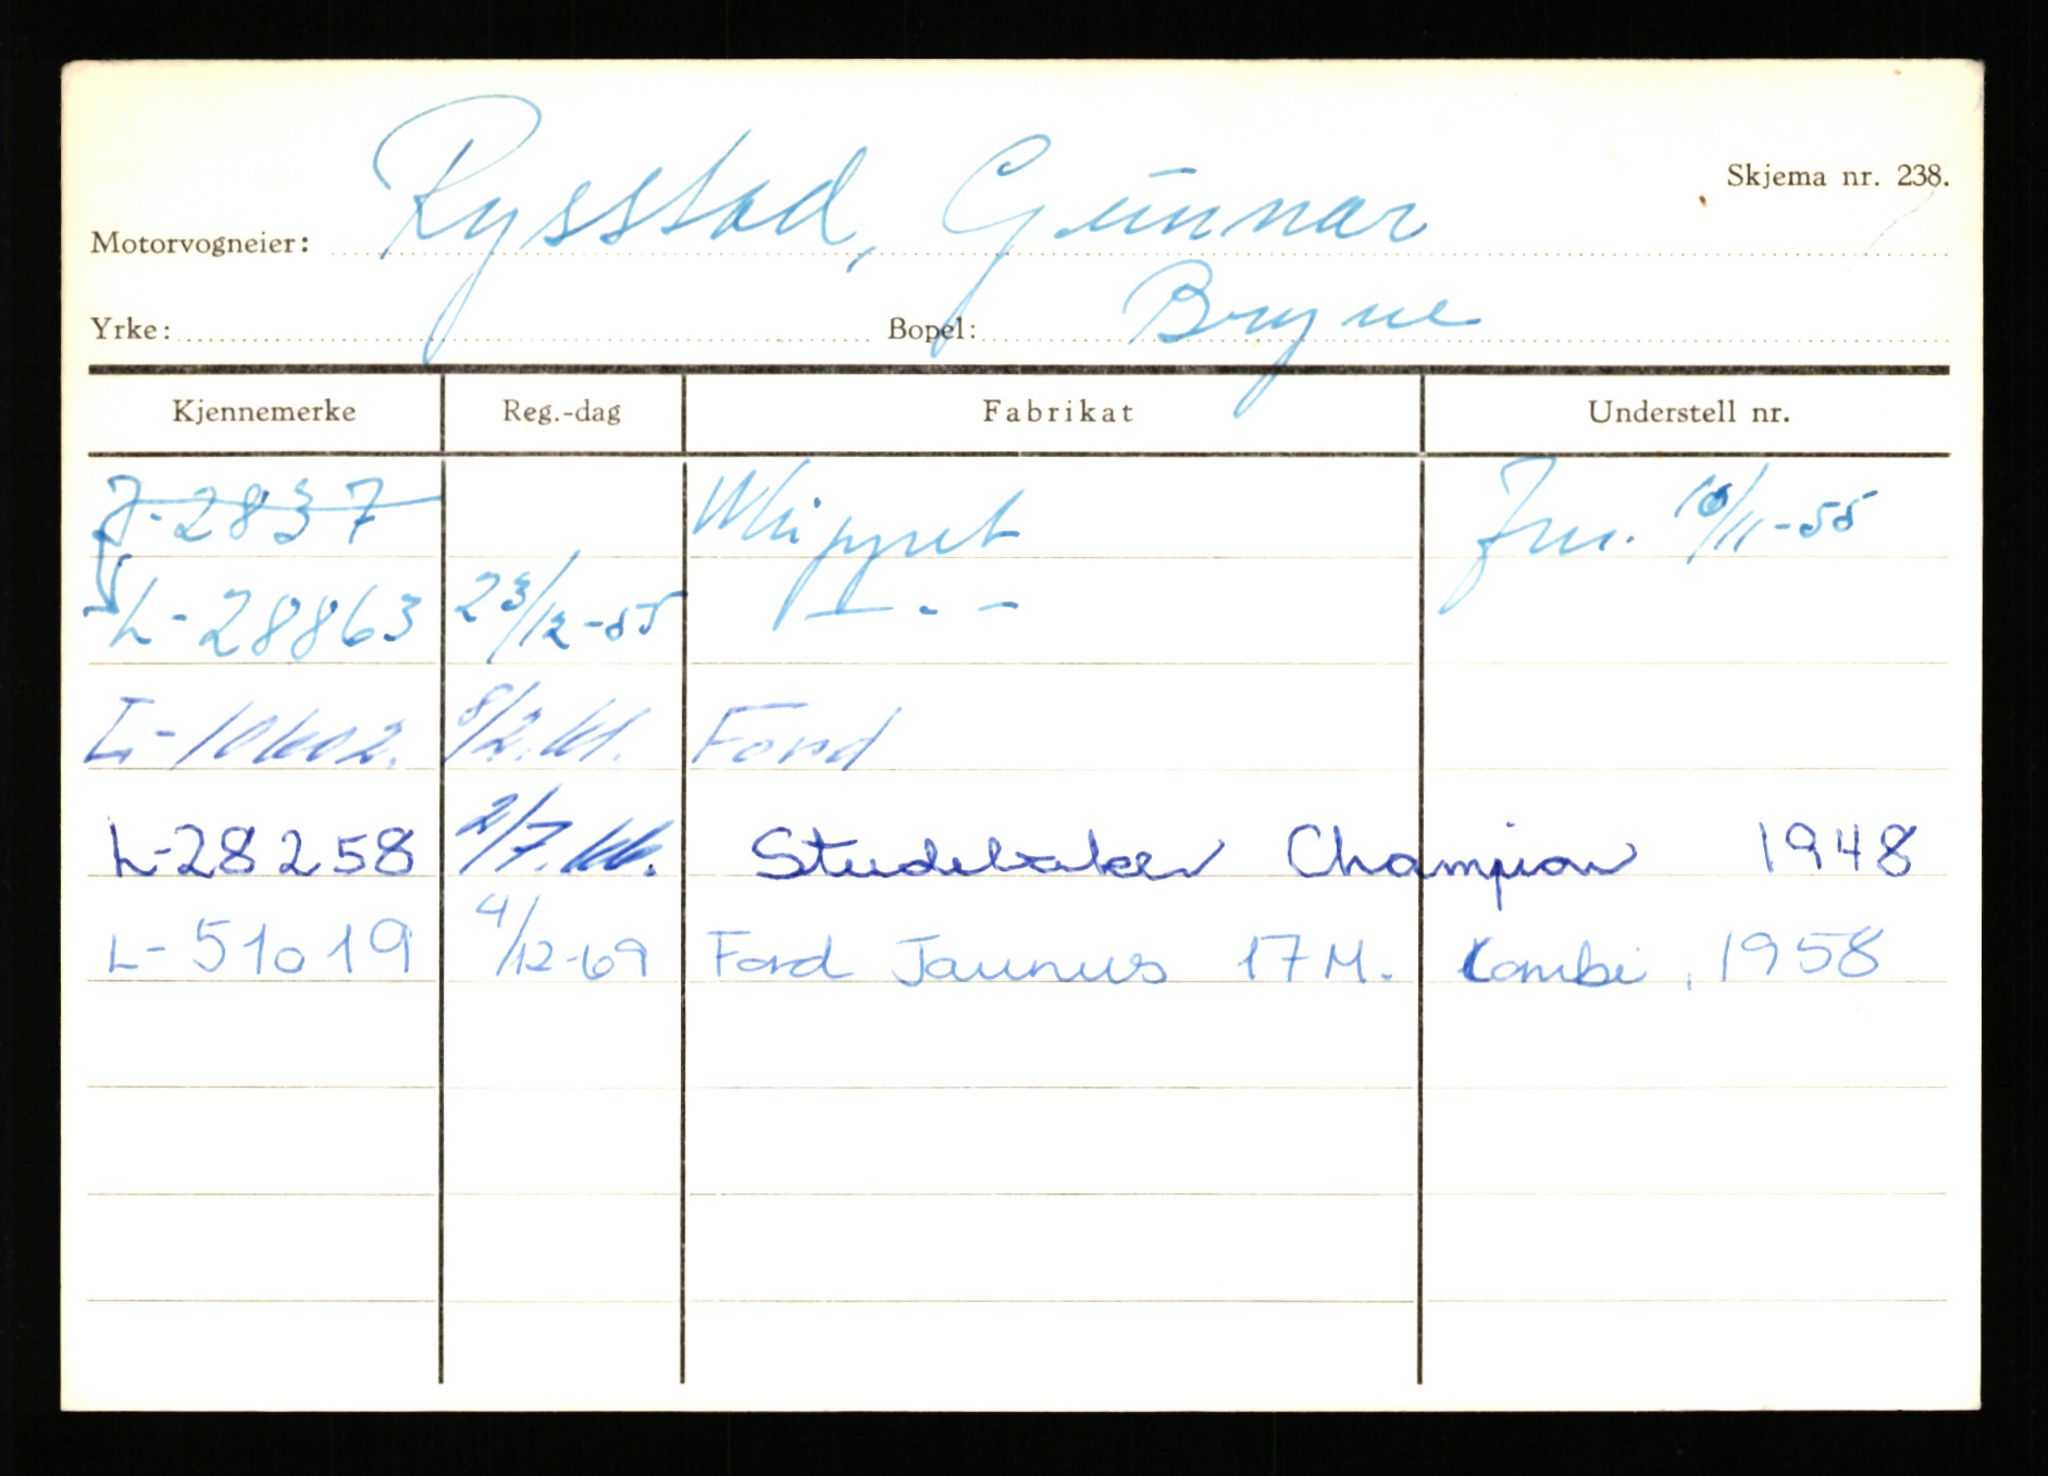 Skjema nr. 238.
Motorvogneier: Rysstad, Gunnar
Yrke: Bopel: Bryne
Kjennemerke Reg.-dag Fabrikat Understell nr.
J-2837 Whippet 10/11-55
L-28863 23/12-55 — . –
L-10602. 8/2.61. Ford
L-28258 2/7.66. Studebaker Champion 1948
L-51019 4/12-69 Ford Taunus 17M. Kombi, 1958